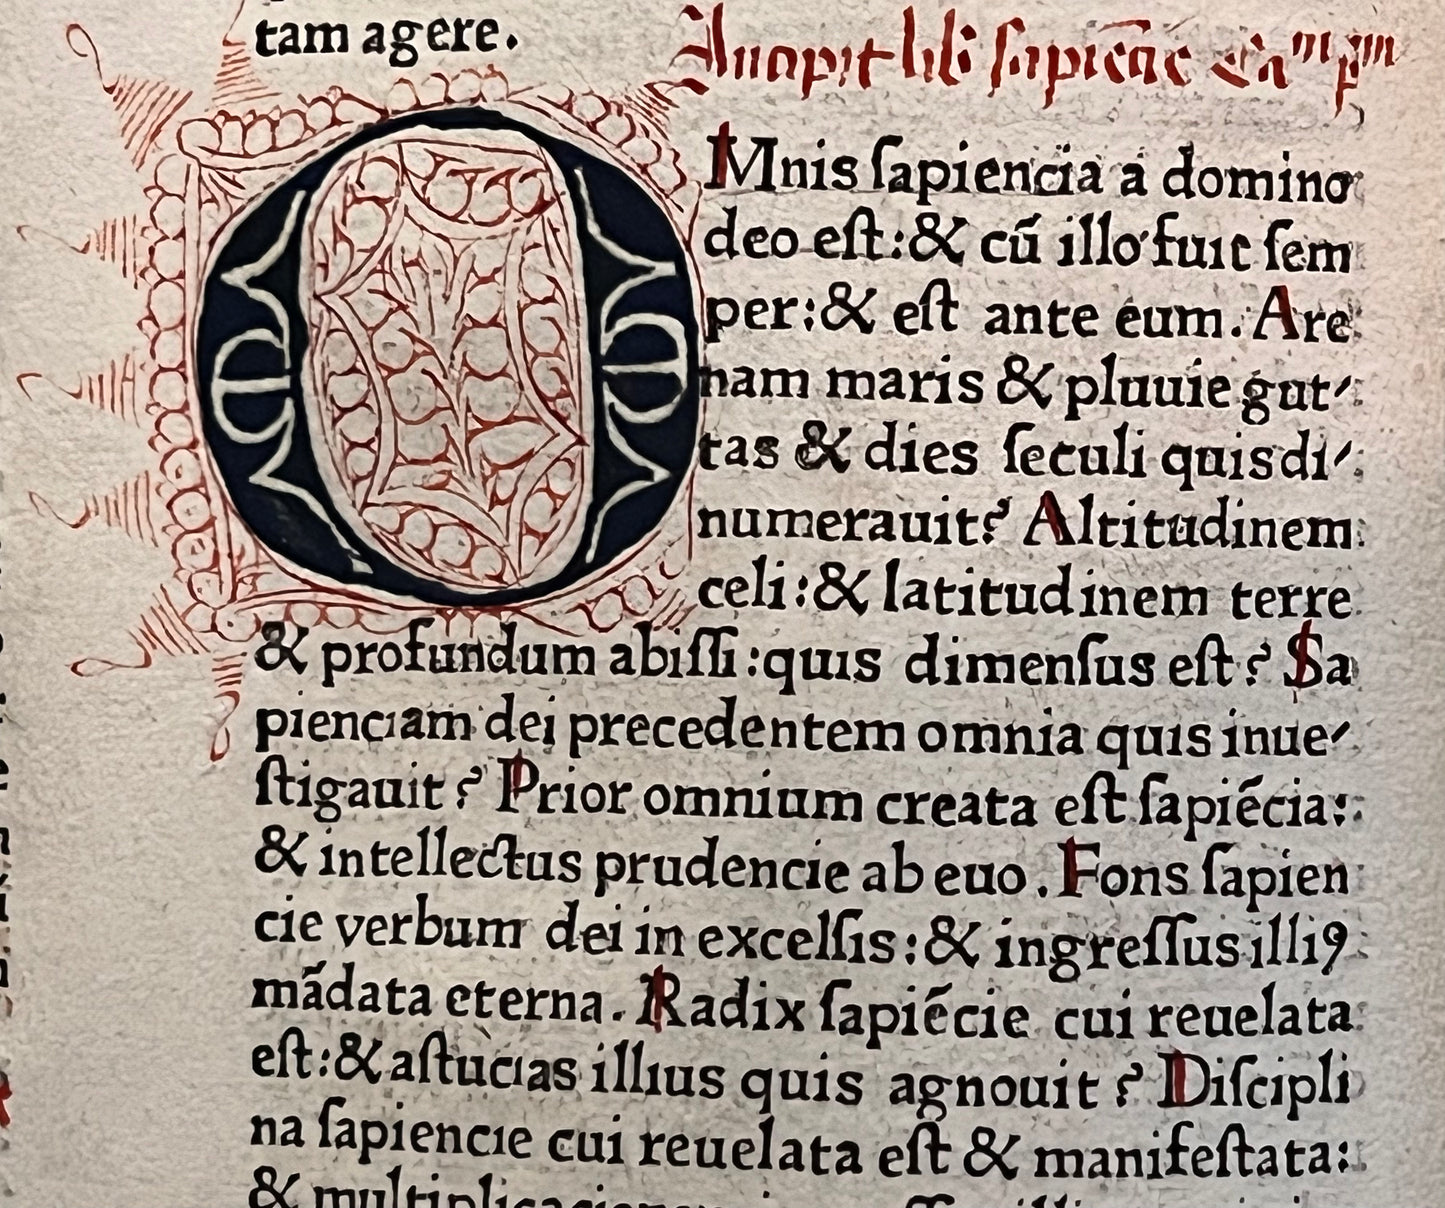 tam agere.
Incipit lib̃ sapiẽcie Ca^m p^m
OMnis ſapiencia a domino
deo eſt:& cũ illo fuit ſem
per:& eſt ante eum. Are
nam maris & pluuie gut⸗
tas & dies ſeculi quis di⸗
numerauit? Altitudinem
celi:& latitudinem terre
& profundum abiſſi:quis dimenſus eſt? Sa
pienciam dei precedentem omnia quis inue⸗
ſtigauit? Prior omnium creata eſt ſapiẽcia:
& intellectus prudencie ab euo. Fons ſapien
cie verbum dei in excelſis:& ingreſſus illiꝰ
mãdata eterna. Radix ſapiẽcie cui reuelata
eſt:& aſtucias illius quis agnouit? Diſcipli
na ſapiencie cui reuelata eſt & manifeſtata: